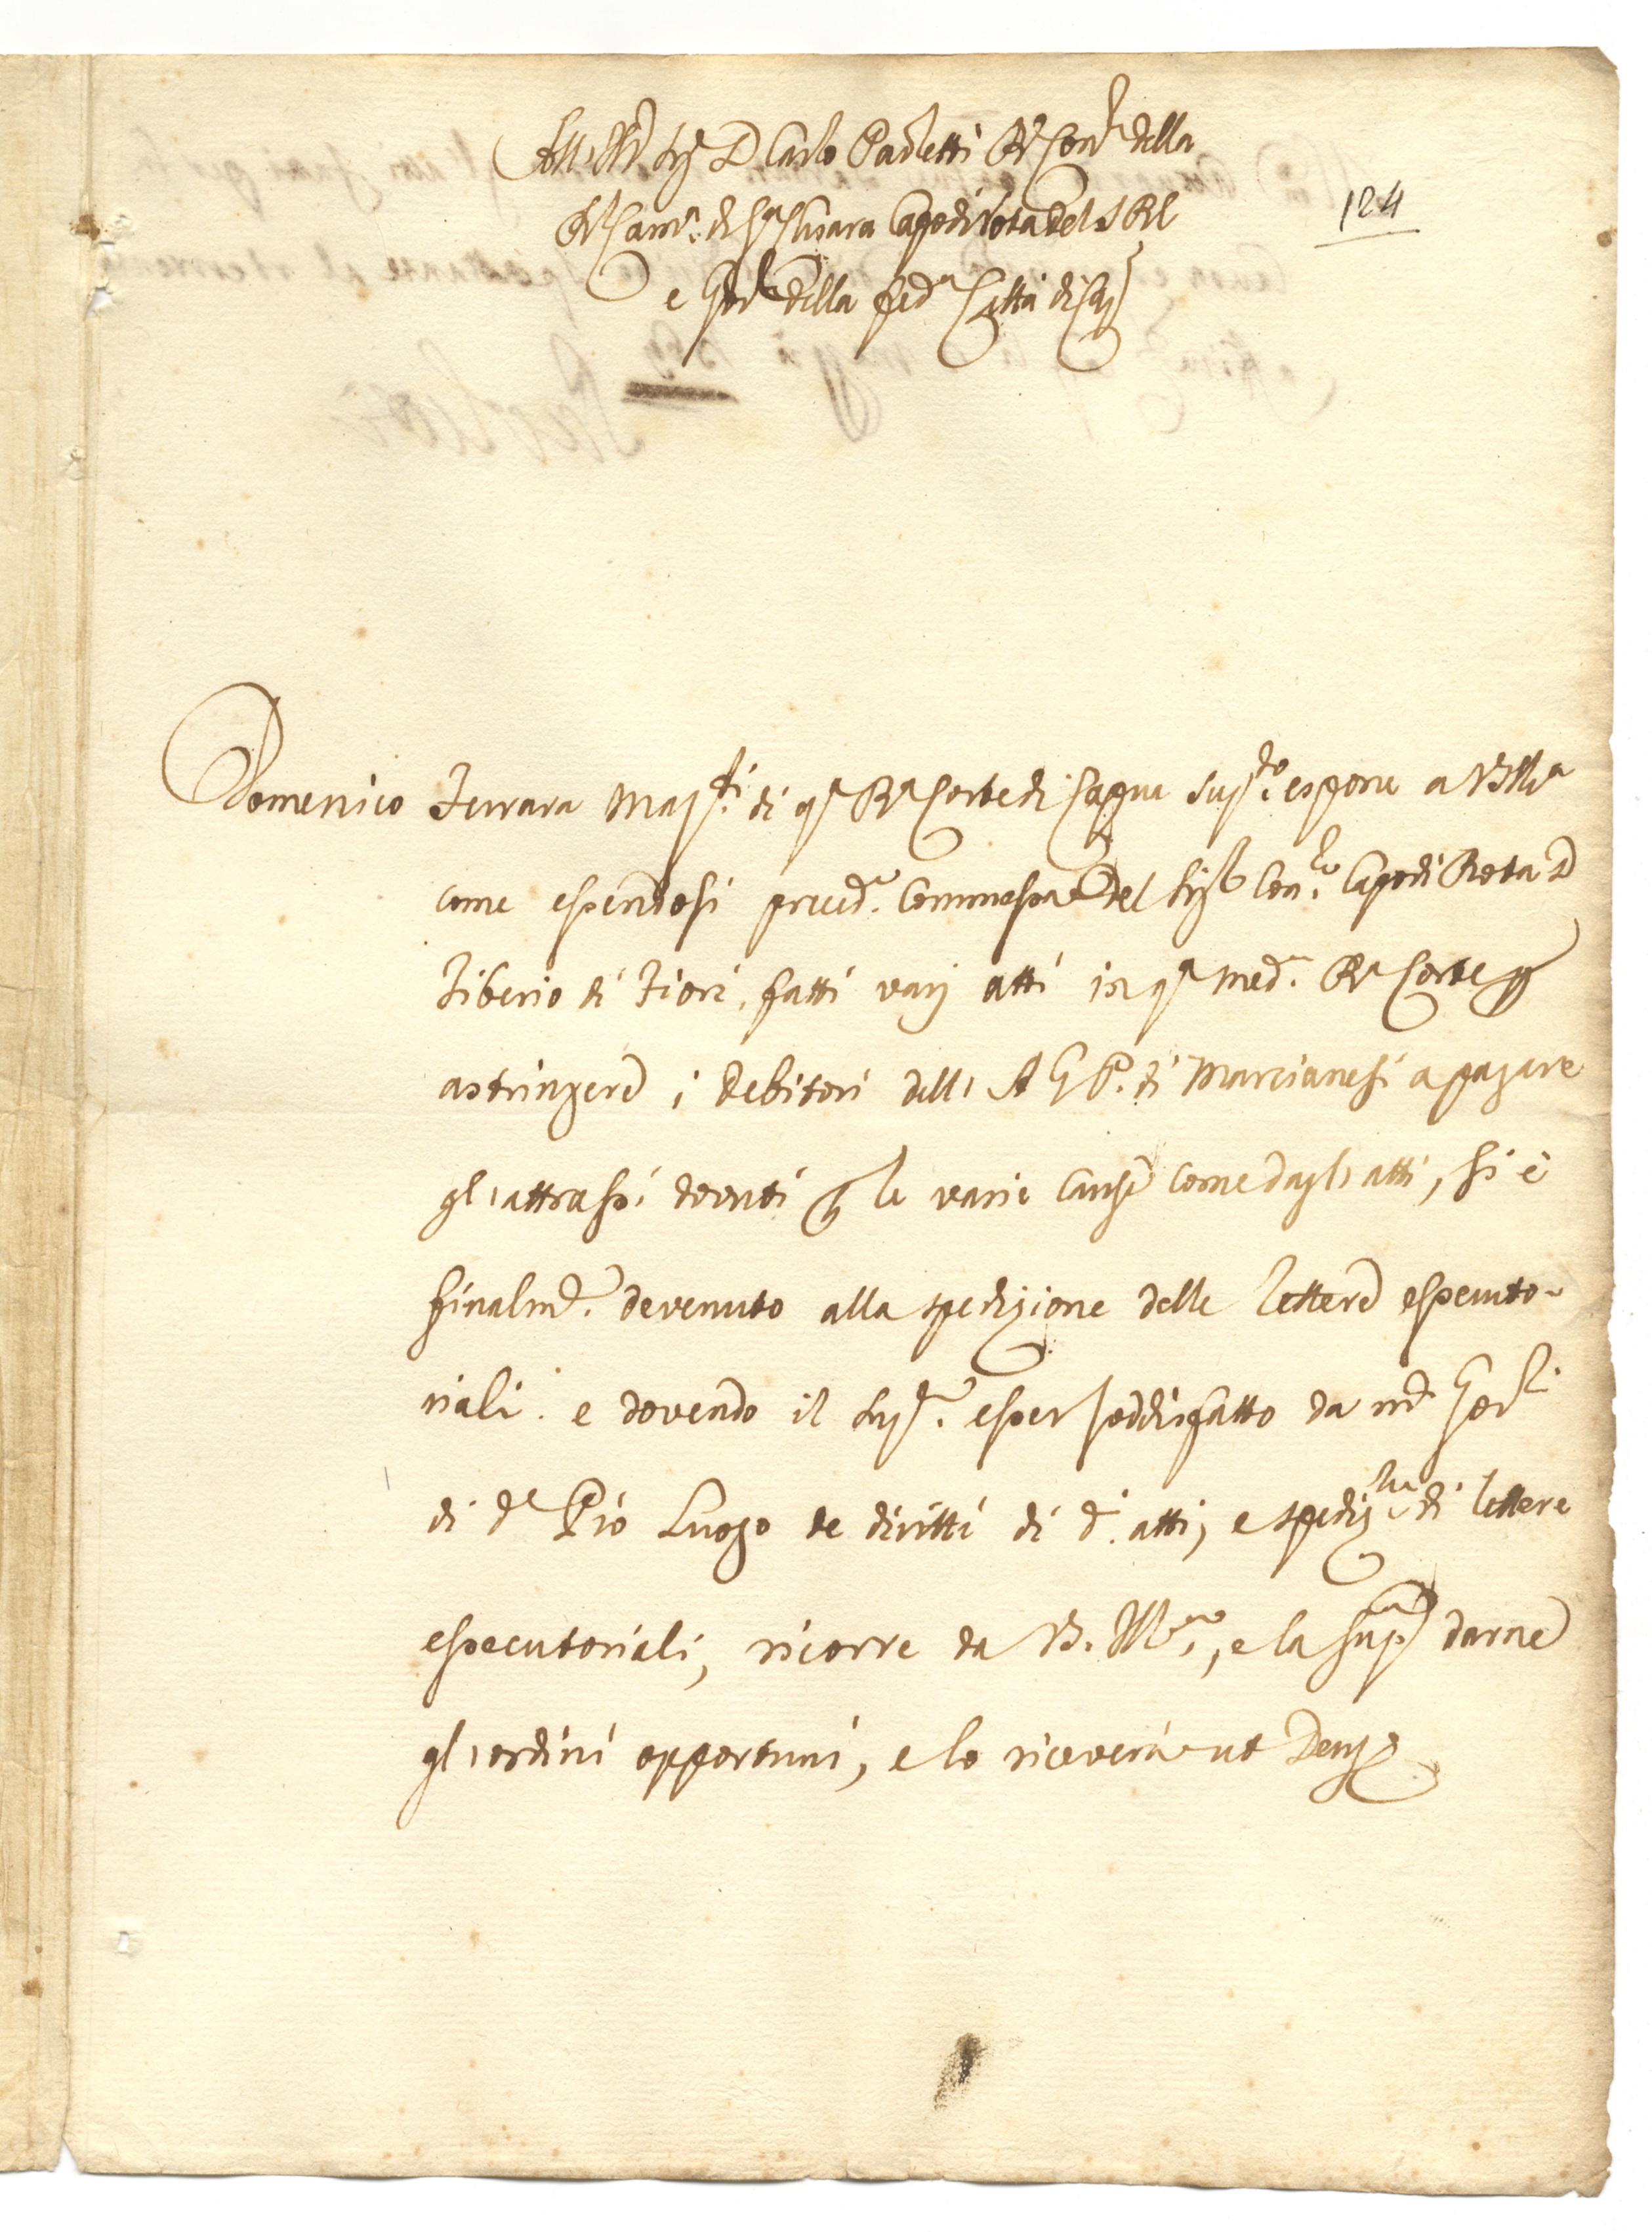 Ill. Sig. D. Carlo Paoletti R. Cons. della
R. Cam. di S. Chiara Capo di Rota del S. R. C.
124
e Gov. della fed. Città di Cap.
Domenico Ferrara de di q.a R.a Corte di Capua sup.do espone a V.S. Ill.a
come essendosi preced. Commessione del Sig. Con.ro Capo di Rota D.
Tiberio di Fiori, fatti varj atti in q.a med. R.a Corte per
astringere i debitori dell' A G P. di Marcianesi a pagare
gl'attrassi dovuti per le varie cause come dagl'atti, si è
finalm.e devenuto alla spedizione delle lettere essecuto-
riali. e dovendo il sup.e esser soddisfatto da Gov.ri
di d.o Pio Luogo de diritti di d.i atti, e spediz.ne di lettere
essecutoriali, ricorre da V. S. Ill.ma, e la sup.a darne
gl'ordini opportuni, e lo riceverà ut Deus